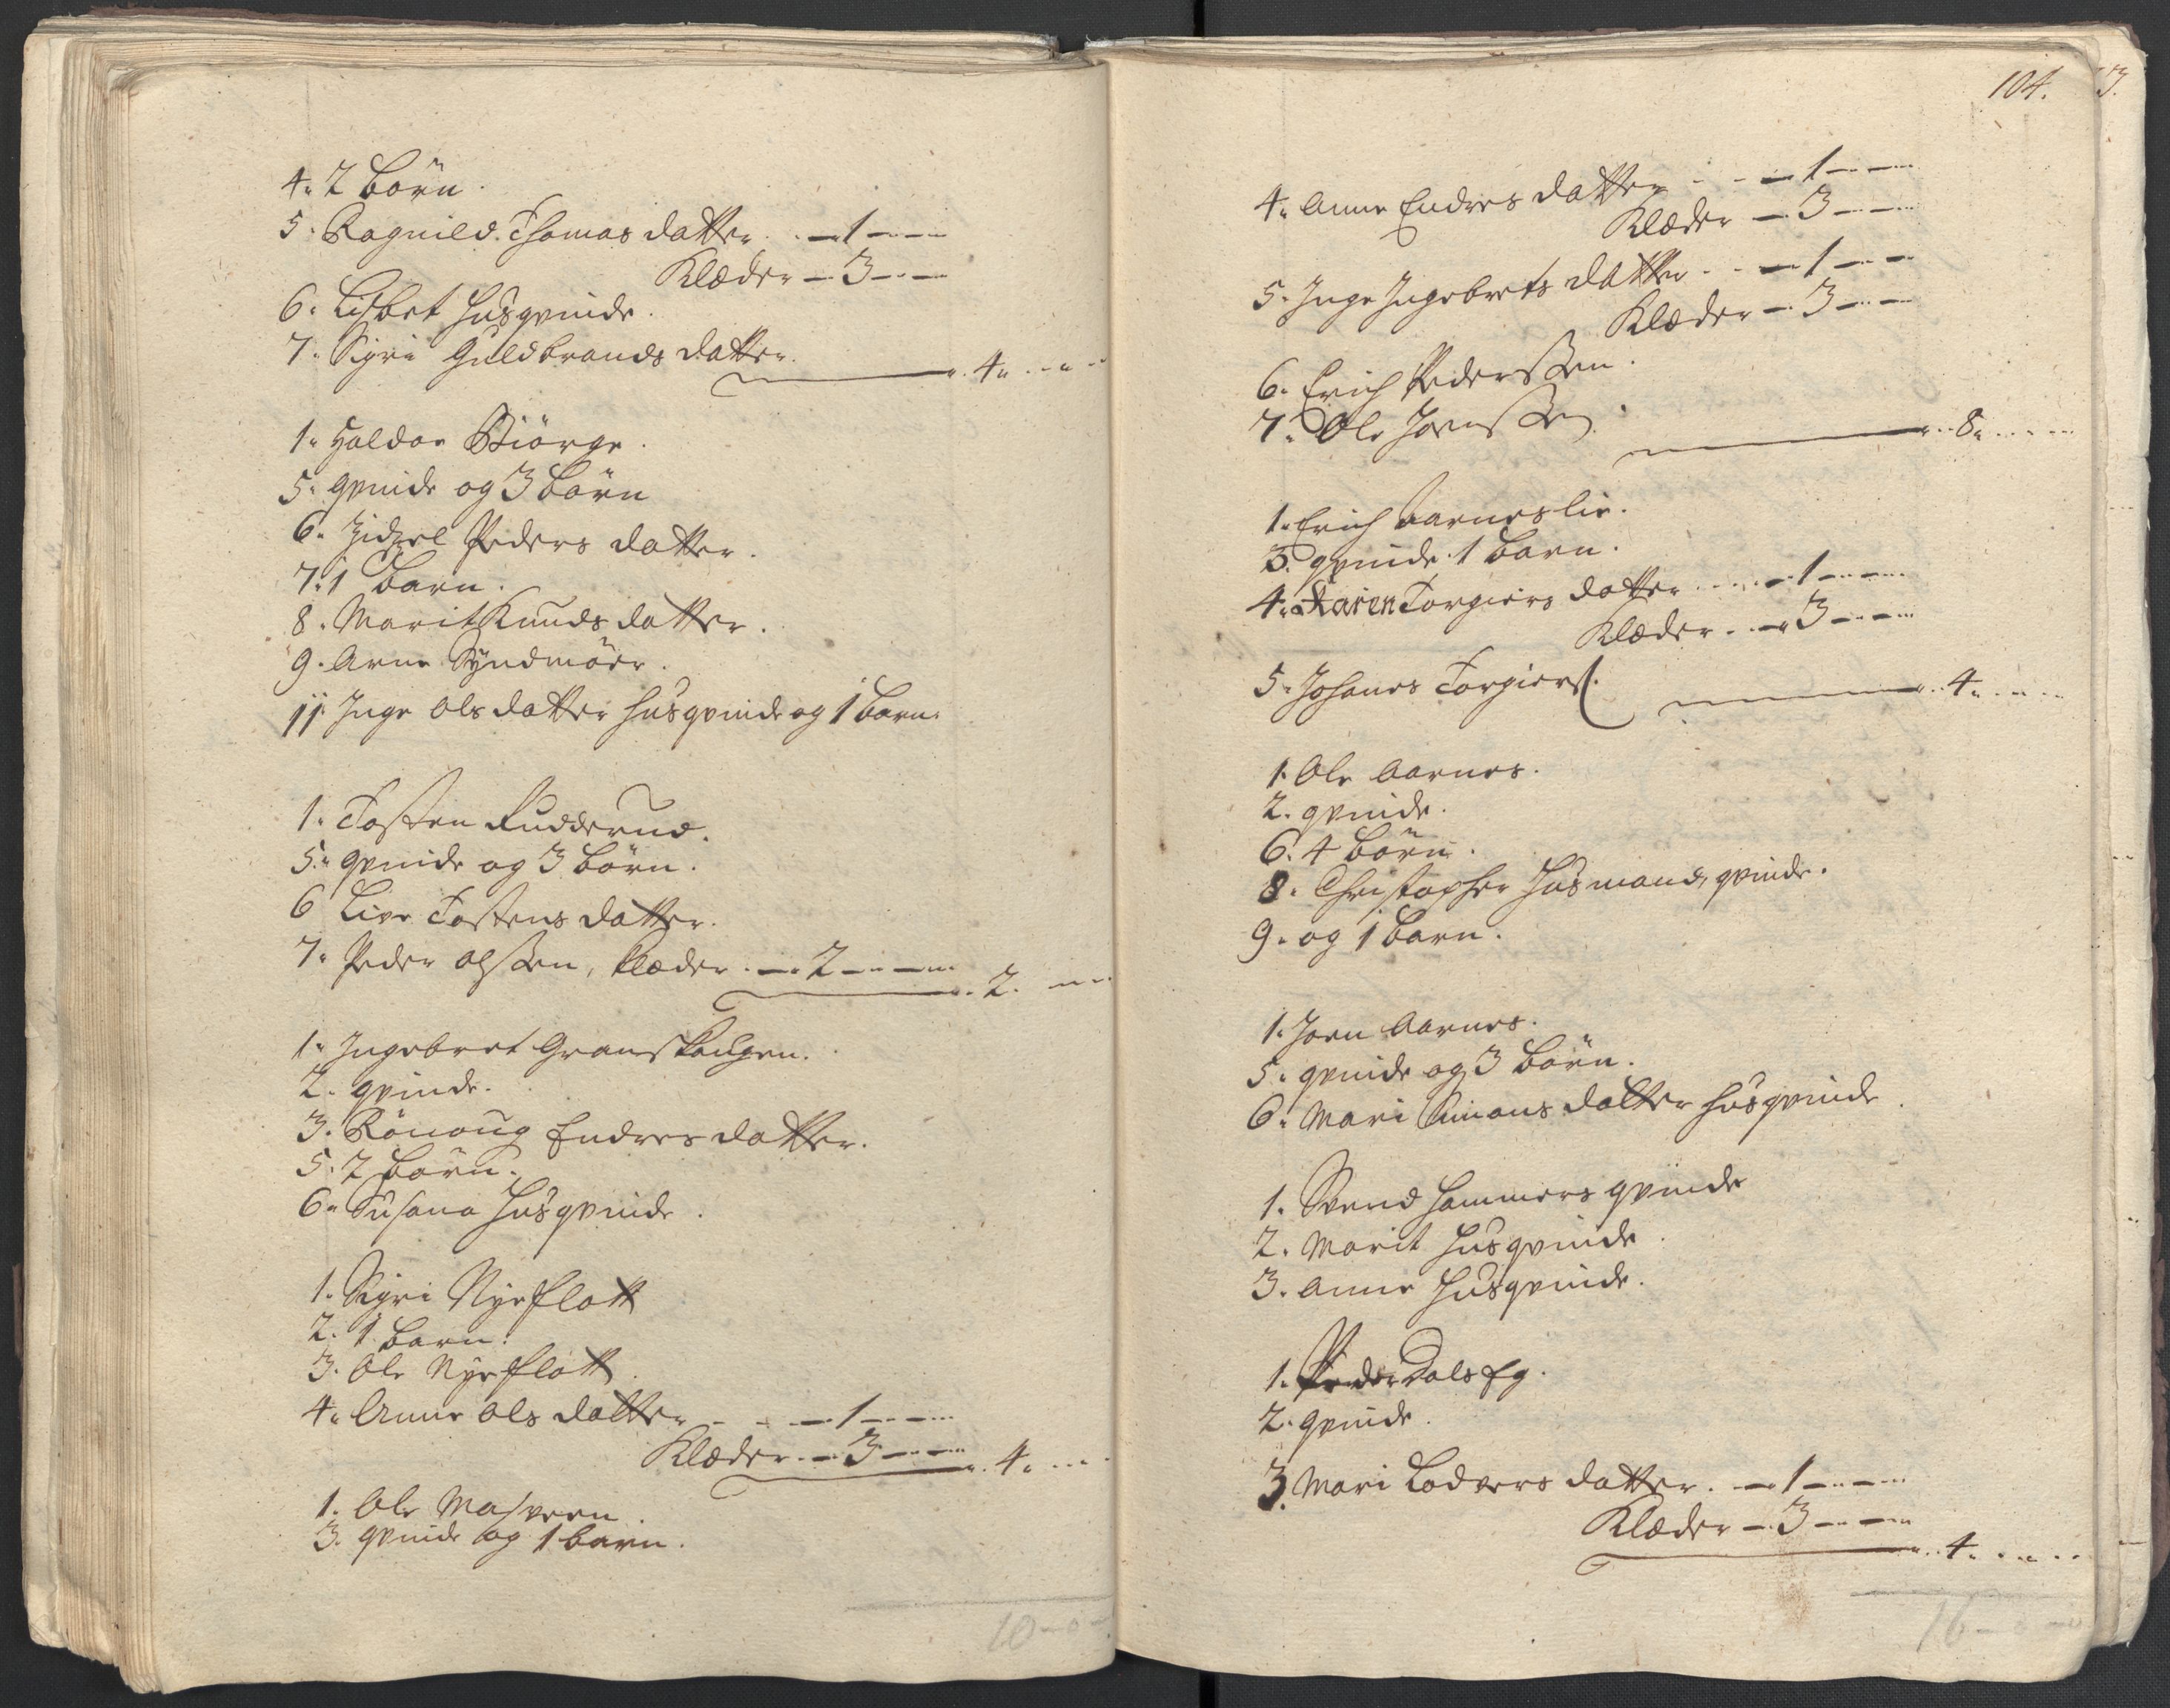 4. 2 börn.
5. Ragnild Thomas datter - 1 - -
Klæder - 3 - -
6. Lisbet husqvinde.
7. Sigri Guldbrands datter.
4 - -
1. Haldor Biörge.
5. qvinde og 3 börn
6. Zidzel Peders datter.
7. 1 barn.
8. Marit Knuds datter.
9. Arne Syndmöer.
11. Inge Ols datter husqvinde og 1 barn.
1. Tosten Rudderud.
5. qvinde og 3 börn.
6 Live Tostens datter.
7. Peder Olssen, klæder - 2 - -
2. - -
1. Ingebret Granskougen.
2. qvinde.
3. Rönoug Endres datter.
5. 2 börn.
6. Susana husqvinde.
1. Sigri Nyeflott
2. 1 barn.
3. Ole Nyeflott.
4. Anne Ols datter - - 1 - -
Klæder - 3 - -
4. - -
1. Ole
3. qvinde og 1 barn.
10 - 0 -
104.
3.
4. Anne Endres datter - - 1 - -
Klæder - 3 - -
5. Inge Ingebrets datter - - 1 - -
Klæder - 3 - -
6. Erich Pederssen.
7. Ole Joenssen.
8. - -
1. Erich Aarneslie.
3. qvinde. 1 barn.
4. Karen Torgiers datter - - 1 - -
Klæder - - 3 - -
5. Johanes Torgiers.
4. - -
1. Ole Aarnes.
2. qvinde.
6. 4 börn.
8. Christopher husmand, qvinde.
9. og 1 barn.
1. Joen Aarnes.
5. qvinde og 3 börn.
6. Mari Simons datter husqvinde.
1. Svend Hammers qvinde
2. Marit husqvinde.
3. Anne husqvinde.
1. Peder Dalseg.
2. qvinde.
3. Mari Lodvers datter. - 1 - -
Klæder - 3 - -
4. - -
16 - 0 - 0